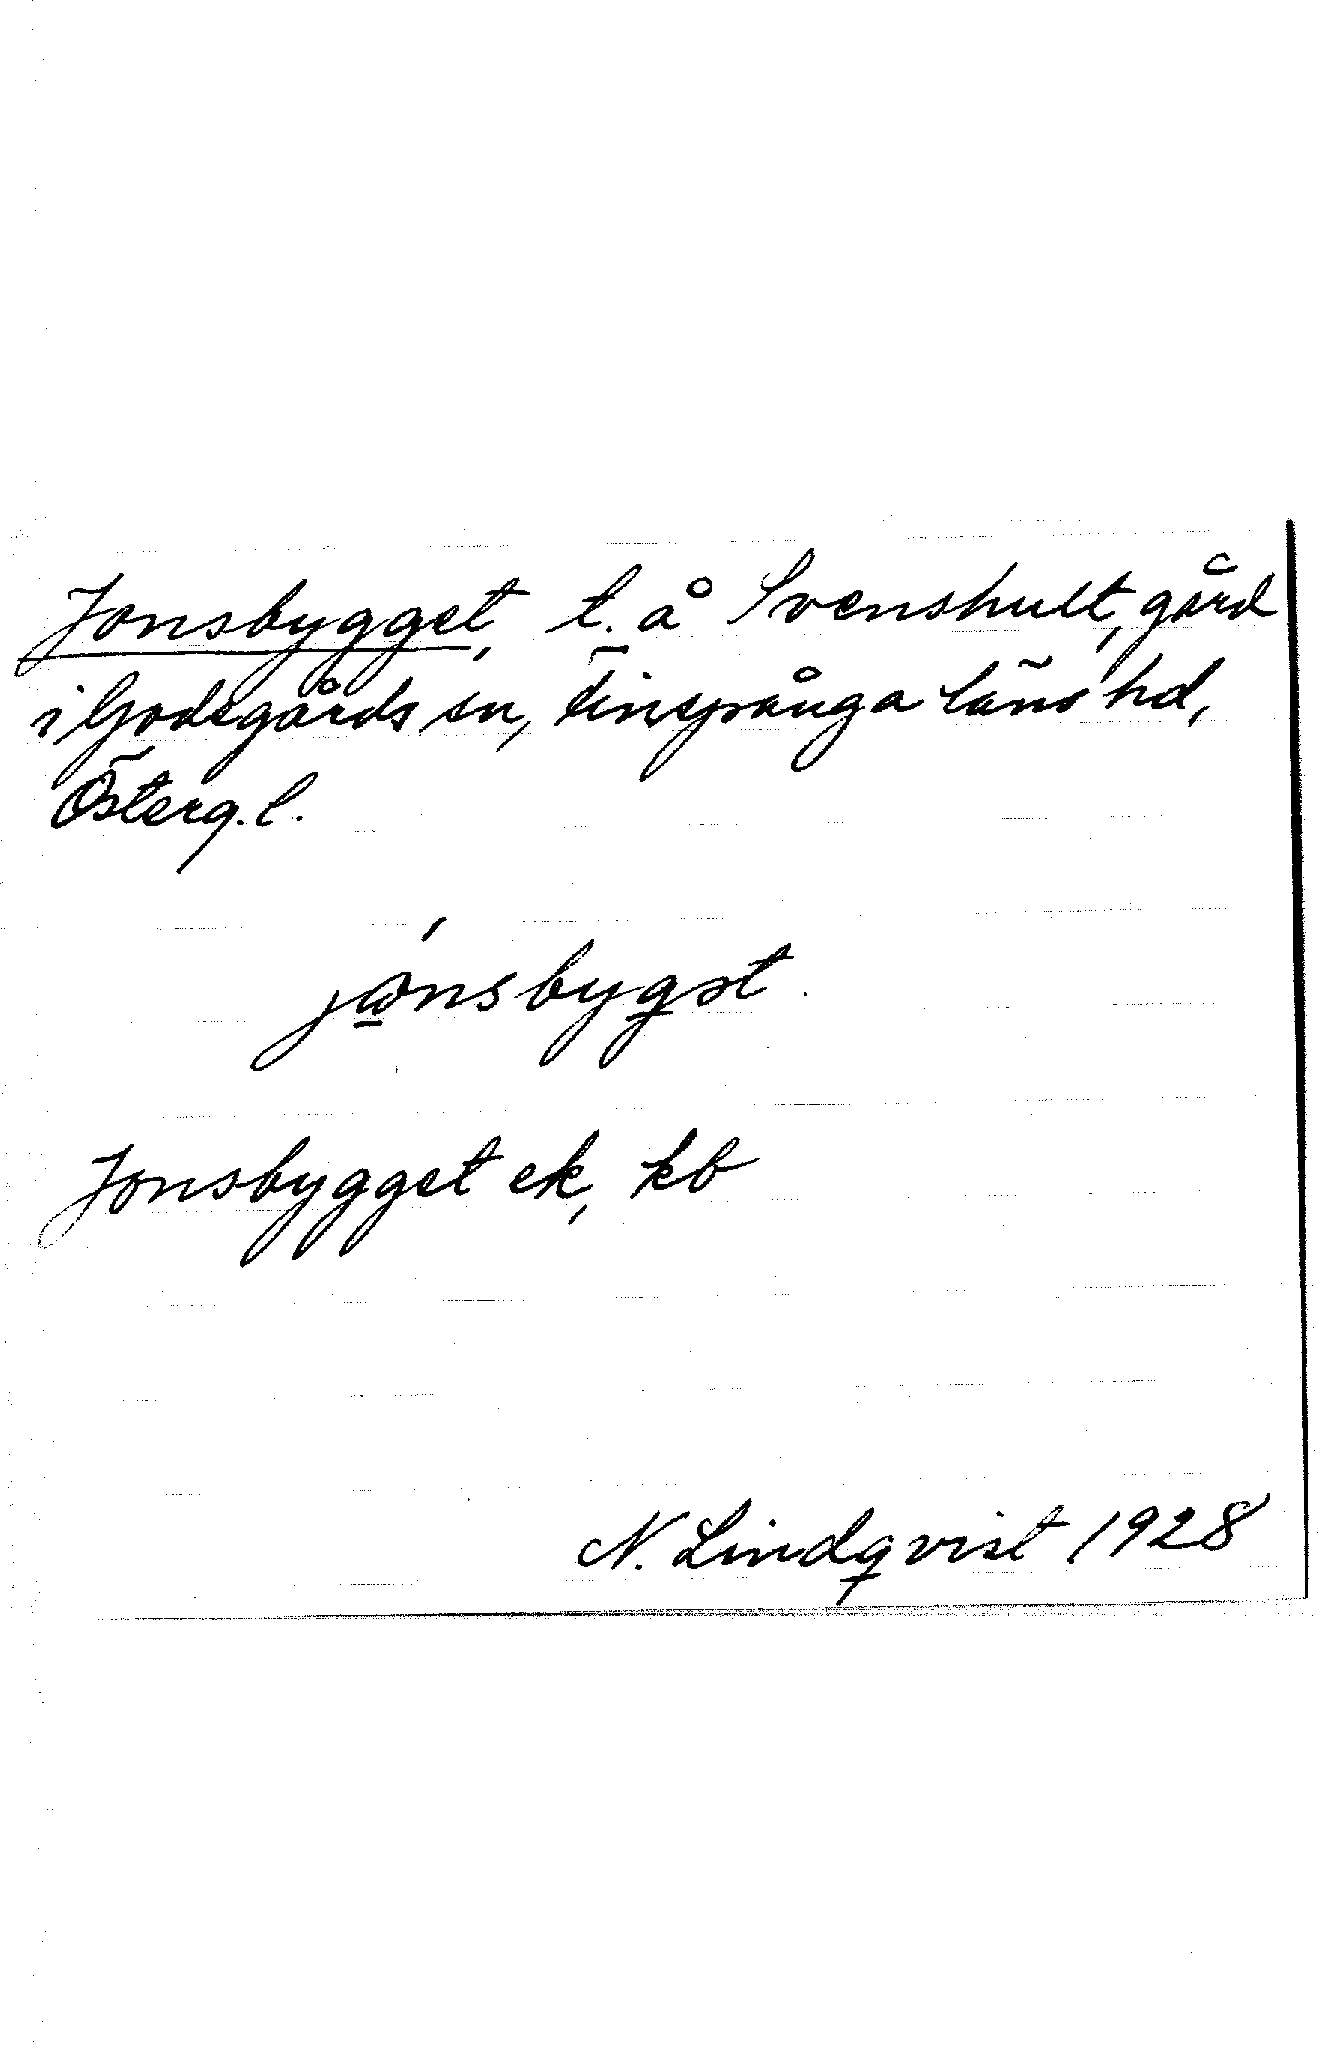 Jonsbygget, t. å Svenshult, gård
i Godegårds sn, Finspånga läns hd,
Österg. l.
jɷ́nsbygət
Jonsbygget ek, kb
N. Lindqvist 1928